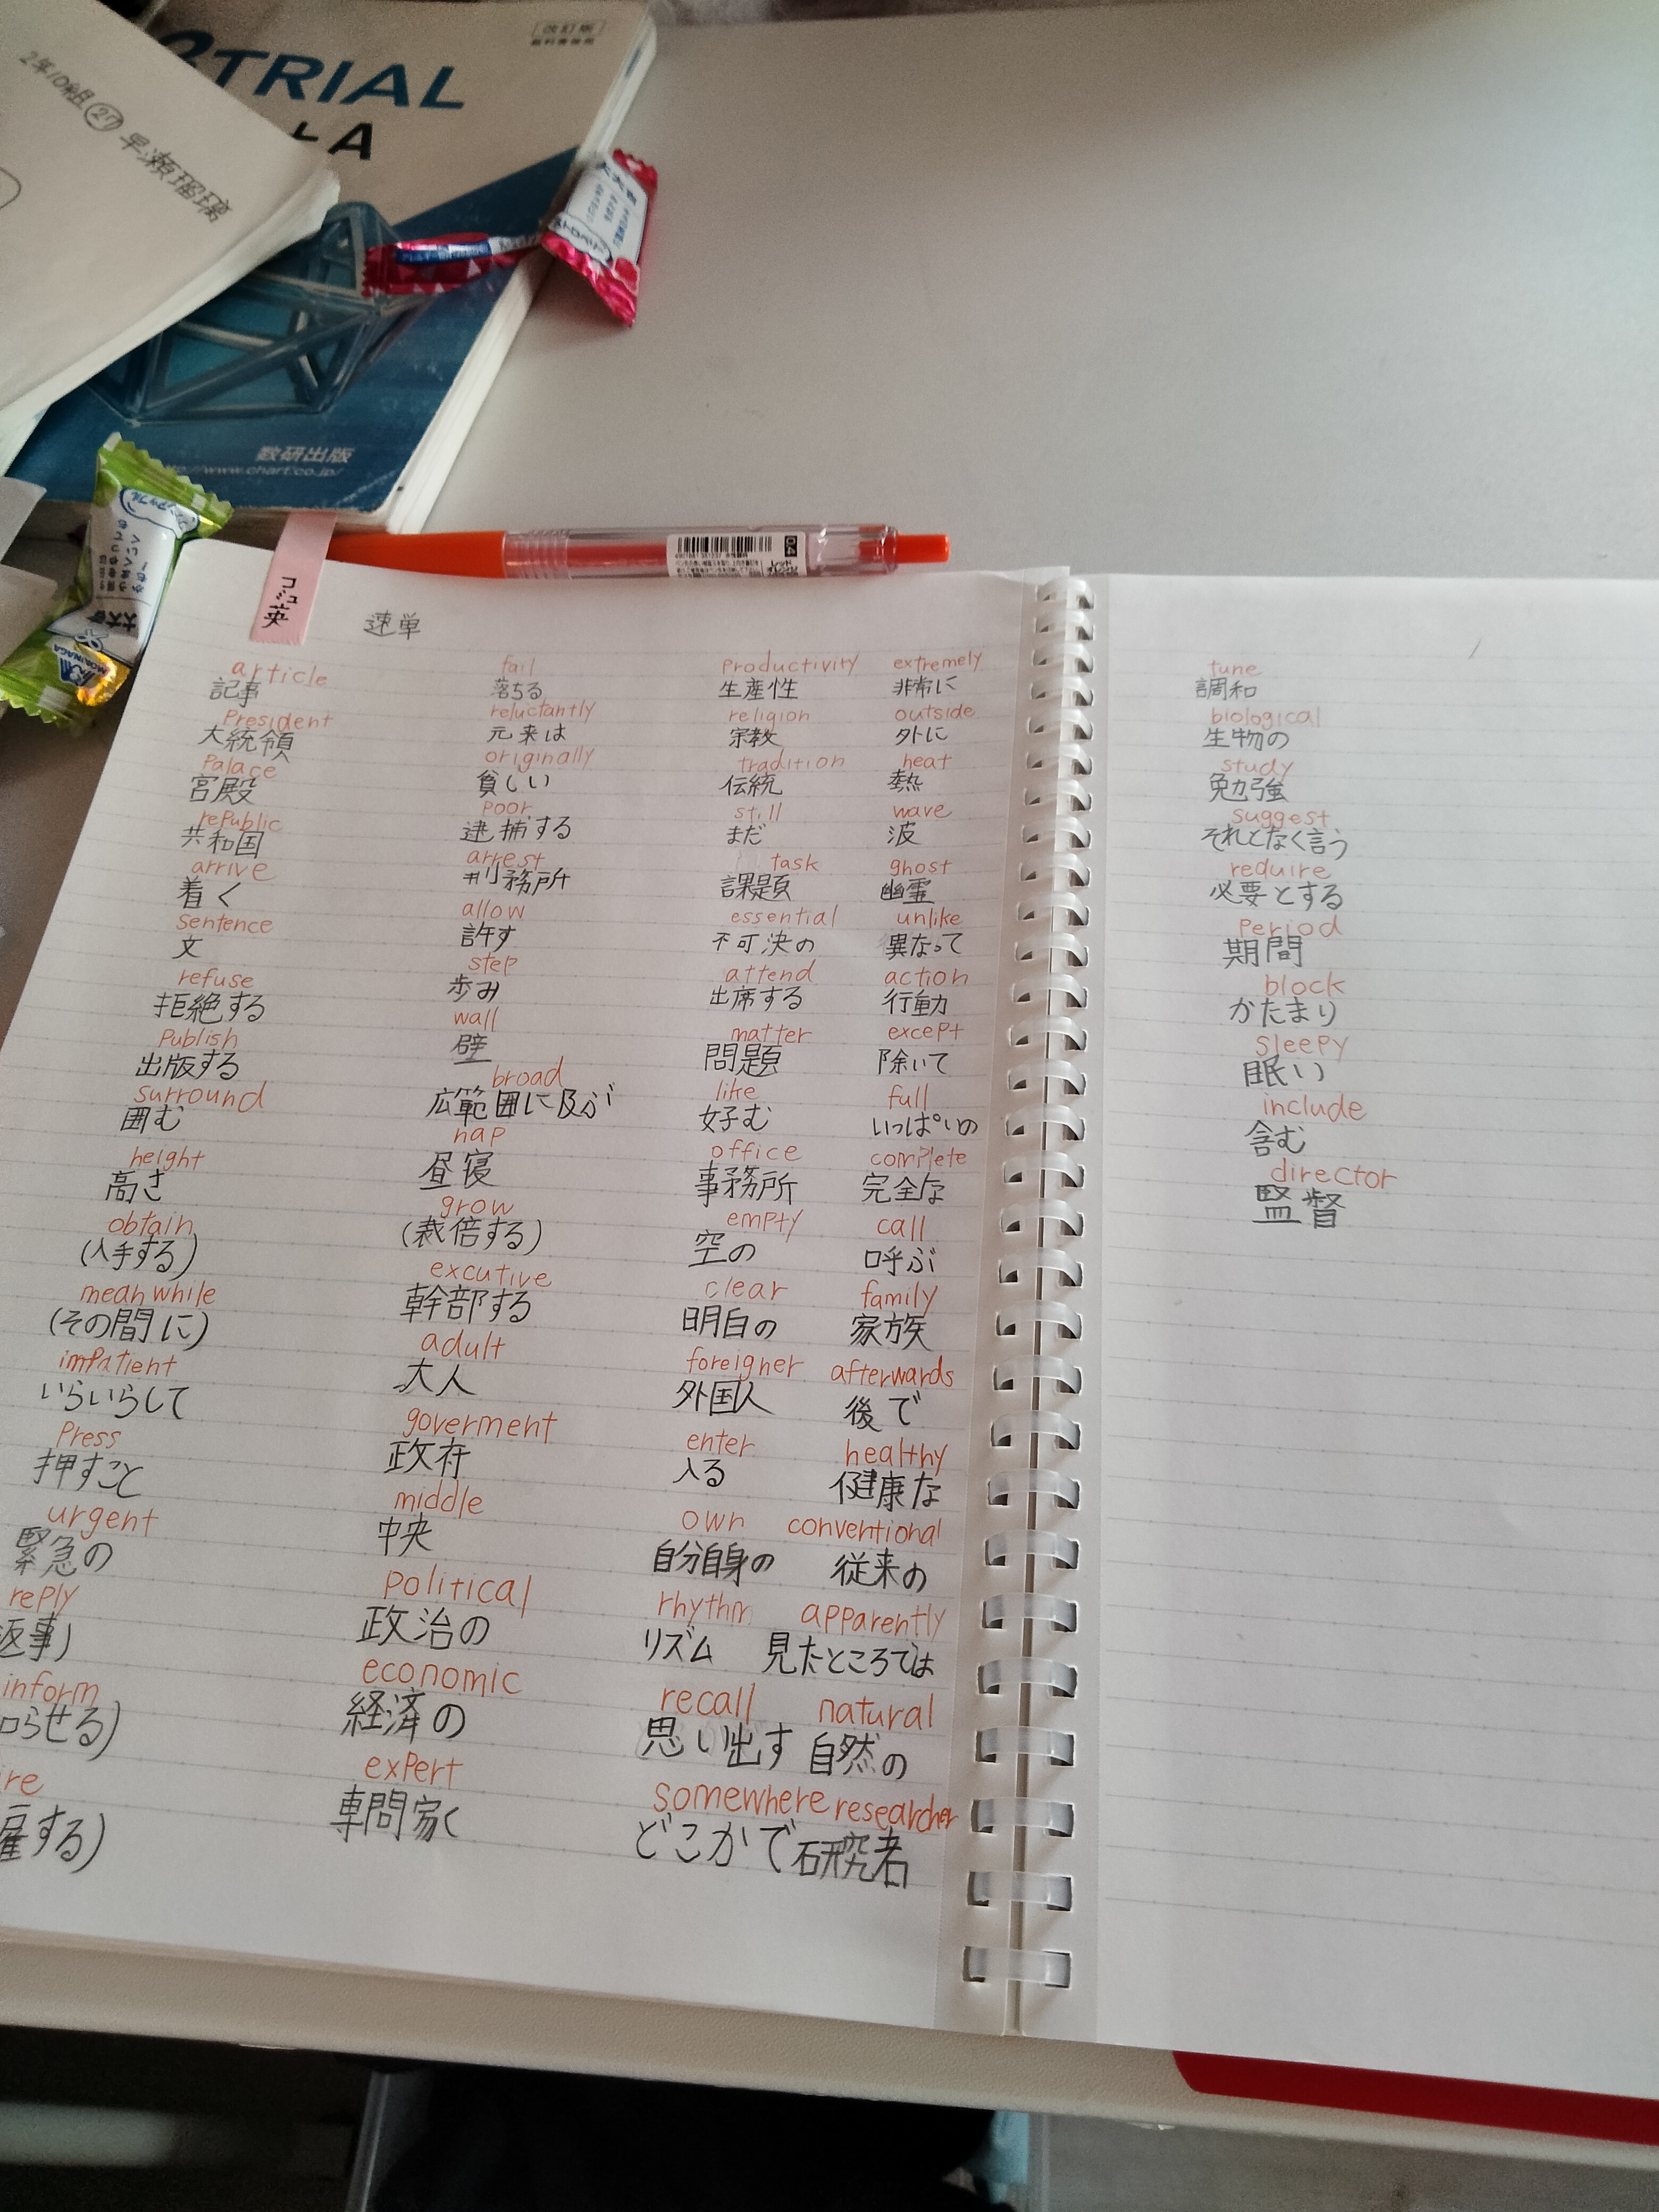 2年10組㉗ 早瀬瑠璃
TRIAL
+A
改訂版
数研出版
http://www.chart.co.jp/
MORINAGA
0.4
コミュ英
速単
article
記事
President
大統領
Palace
宮殿
rePublic
共和国
arrive
着く
sentence
文
refuse
拒絶する
Publish
出版する
surround
囲む
height
高さ
obtain
(入手する)
meanwhile
(その間に)
imPatient
いらいらして
Press
押すこと
urgent
緊急の
rePly
返事)
inform
知らせる)
ire
雇する)
fail
落ちる
reluctantly
元来は
originally
貧しい
poor
逮捕する
arrest
刑務所
allow
許す
step
歩み
wall
壁
broad
広範囲に及ぶ
nap
昼寝
grow
(栽倍する)
excutive
幹部する
adult
大人
goverment
政府
middle
中央
political
政治の
economic
経済の
exPert
専問家く
Productivity
生産性
religion
宗教
tradition
伝統
still
まだ
task
課題
essential
不可決の
attend
出席する
matter
問題
like
好む
office
事務所
empty
空の
clear
明白の
foreigner
外国人
enter
入る
own
自分自身の
rhythm
リズム
recall
思い出す
somewhere
どこかで
extremely
非常に
outside
外に
heat
熱
wave
波
ghost
幽霊
unlike
異なって
action
行動
except
除いて
full
いっぱいの
complete
完全な
call
呼ぶ
family
家族
afterwards
後で
healthy
健康な
conventional
従来の
apparently
見たところでは
natural
自然の
researcher
研究者
tune
調和
biological
生物の
study
勉強
suggest
それとなく言う
require
必要とする
Period
期間
block
かたまり
sleepy
眠い
include
含む
director
監督